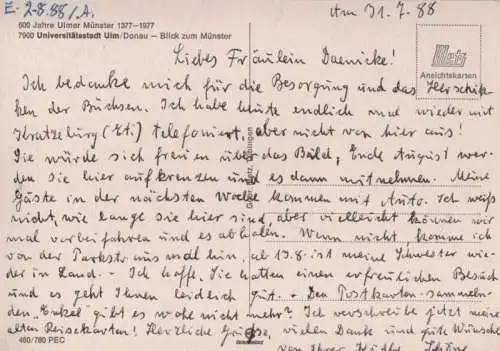 E - 2-8.88/A.
Ulm 31.7.88
600 Jahre Ulmer Münster 1377-1977
7900 Universitätsstadt Ulm/Donau — Blick zum Münster
Metz
Ansichtskarten
Liebes Fräulein Daenicke!
Ich bedanke mich für die Besorgung und das Herschik-
ken der Büchsen. Ich habe heute endlich mal wieder mit
Kratzeburg telefoniert, aber nicht von hier aus!
Sie würde sich freuen über das Bild, Ende August wer-
den sie hier aufkreuzen und es dann mitnehmen. Meine
Gäste in der nächsten Woche kommen mit Auto. Ich weiß
nicht, wie lange sie hier sind, aber vielleicht können wir
mal vorbeifahren und es abholen. Wenn nicht, komme ich
von der Parkstr. aus mal hin, ab 13.8. ist meine Schwester wie-
der in Land. - Ich hoffe, Sie hatten einen erfreulichen Besuch
und es geht Ihnen leidlich gut. - Den Postkarten-sammeln-
den "Enkel" gibt es wohl nicht mehr? Ich verschreibe jetzt meine
alten Reisekarten! Herzliche Grüße, vielen Dank und gute Wünsche
von Ihrer
460/780 PEC